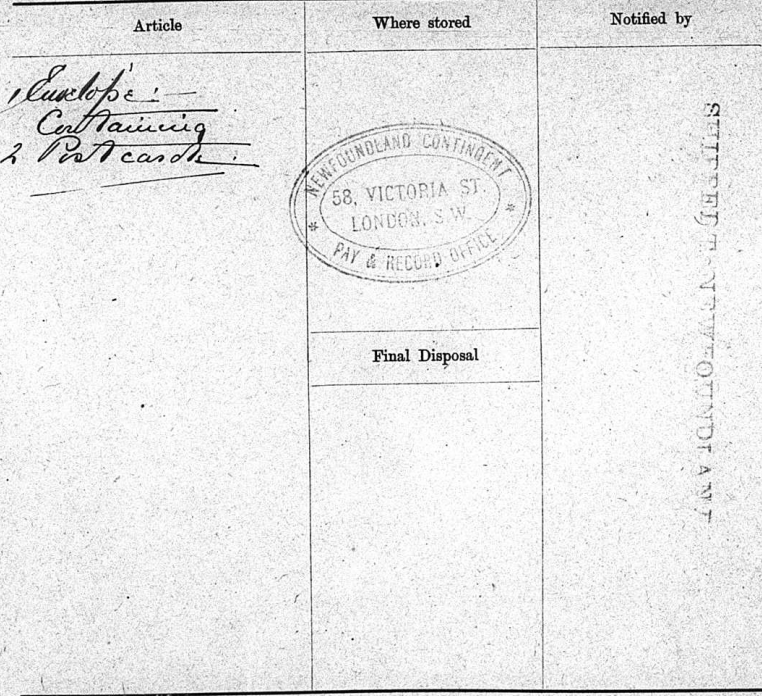 Article
Where stored
Notified by
1 Envelope :—
Containing
2 Post cards :
NEWFOUNDLAND CONTINGENT
58, VICTORIA ST.
LONDON, S.W.
* PAY & RECORD OFFICE *
Final Disposal
NEWFOUNDLAND